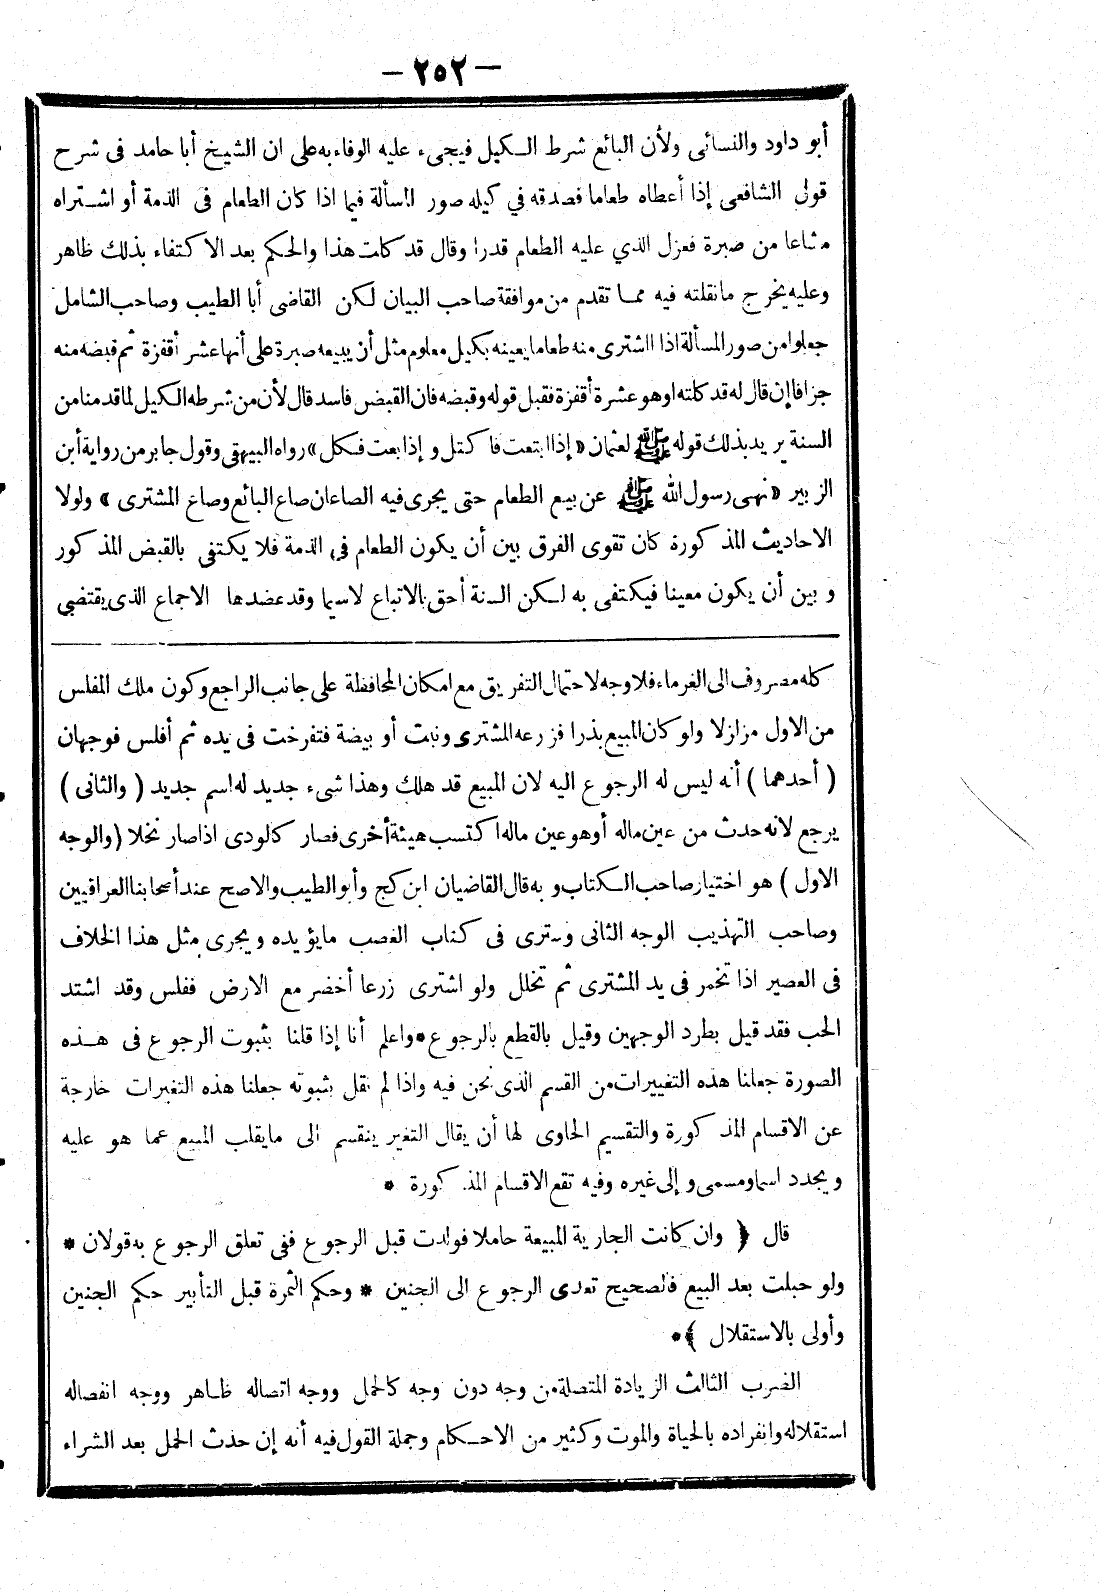 — ٢٥٢ —
أبو داود والنسائى ولأن البائع شرط الكيل فيجىء عليه الوفاء به على ان الشيخ أبا حامد فى شرح
قول الشافعى إذا أعطاه طعاما فصدقه في كيله صور المسألة فيما اذا كان الطعام فى الذمة أو اشتراه
مشاعا من صبرة فعزل الذي عليه الطعام قدرا وقال قد كلت هذا والحكم بعد الاكتفاء بذلك ظاهر
وعليه يخرج مانقلته فيه مما تقدم من موافقة صاحب البيان لكن القاضى أبا الطيب وصاحب الشامل
جعلوا من صور المسألة اذا اشترى منه طعاما بعينه بكيل معلوم مثل أن يبيعه صبرة على أنها عشر أقفزة ثم قبضه منه
جزافا إن قال له قد كلته او هو عشرة أقفزة فقبل قوله وقبضه فان القبض فاسد قال لأن من شرطه الكيل لما قدمنا من
السنة يريد بذلك قوله ﷺ لعثمان «إذا ابتعت فاكتل وإذا بعت فكل» رواه البيهقى وقول جابر من رواية أبن
الزبير «نهى رسول الله ﷺ عن بيع الطعام حتى يجرى فيه الصاعان صاع البائع وصاع المشترى» ولولا
الاحاديث المذكورة كان تقوى الفرق بين أن يكون الطعام في الذمة فلا يكتفى بالقبض المذكور
وبين أن يكون معينا فيكتفى به لكن السنة أحق بالاتباع لاسيما وقد عضدها الاجماع الذى يقتضي
كله مصروف الى الغرماء فلا وجه لاحتمال التفريق مع امكان المحافظة على جانب الراجع وكون ملك المفلس
من الاول مزازلا ولو كان المبيع بذرا فزرعه المشترى ونبت أو بيضة فتفرخت فى يده ثم أفلس فوجهان
(أحدهما) أنه ليس له الرجوع اليه لان المبيع قد هلك وهذا شىء جديد له اسم جديد (والثانى)
يرجع لانه حدث من عين ماله أو هو عين ماله اكتسب هيئة أخرى فصار كالودى اذا صار نخلا (والوجه
الاول) هو اختيار صاحب الكتاب وبه قال القاضيان ابن كج وأبو الطيب والاصح عند أصحابنا العراقيين
وصاحب التهذيب الوجه الثانى وسترى فى كتاب الغصب مايؤيده ويجرى مثل هذا الخلاف
فى العصير اذا تخمر فى يد المشترى ثم تخلل ولو اشترى زرعا أخضر مع الارض ففلس وقد اشتد
الحب فقد قيل بطرد الوجهين وقيل بالقطع بالرجوع * واعلم أنا إذا قلنا بثبوت الرجوع فى هذه
الصورة جعلنا هذه التغييرات من القسم الذى نحن فيه واذا لم نقل بثبوته جعلنا هذه التغيرات خارجة
عن الاقسام المذكورة والتقسيم الحاوى لها أن يقال التغير ينقسم الى مايقلب المبيع عما هو عليه
ويجدد اسما ومسمى وإلى غيره وفيه تقع الاقسام المذكورة *
قال ﴿ وان كانت الجارية المبيعة حاملا فولدت قبل الرجوع ففى تعلق الرجوع به قولان *
ولو حبلت بعد البيع فالصحيح تعدى الرجوع الى الجنين * وحكم الثمرة قبل التأبير حكم الجنين
وأولى بالاستقلال ﴾ *
الضرب الثالث الزيادة المتصلة من وجه دون وجه كالحمل ووجه اتصاله ظاهر ووجه انفصاله
استقلاله وانفراده بالحياة والموت وكثير من الاحكام وجملة القول فيه أنه إن حدث الحمل بعد الشراء